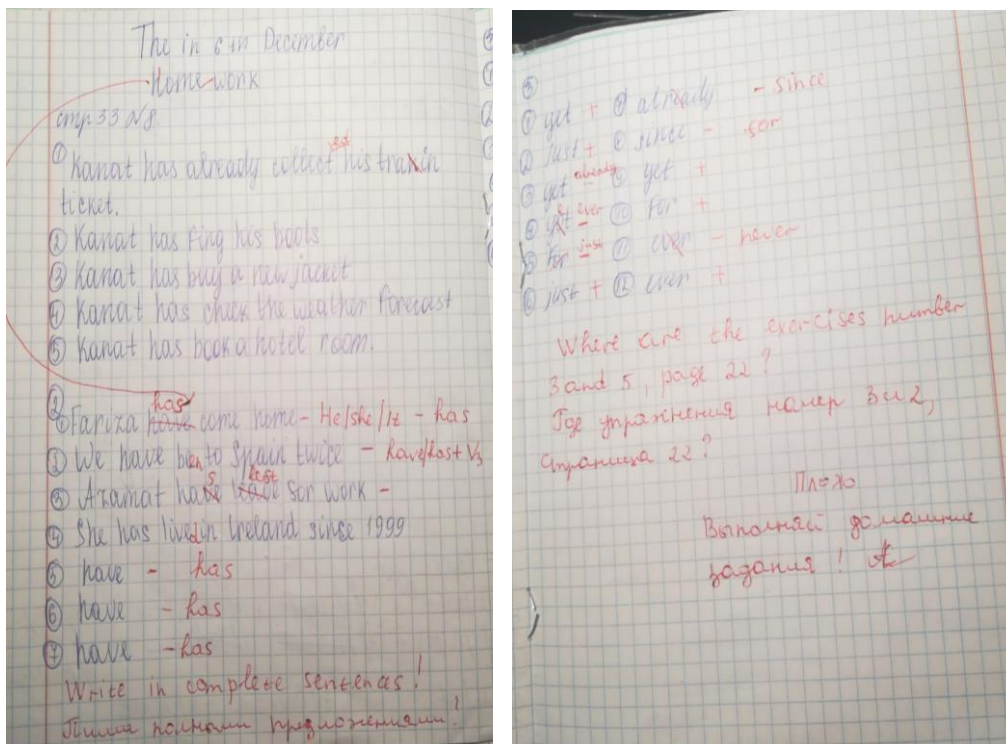 The in 6th December
Home work
стр 33 №8
① Kanat has already collected his train
ticket.
② Kanat has fing his boots
③ Kanat has buy a new jacket
④ Kanat has check the weather forecast
⑤ Kanat has book a hotel room.
②
① Fariza have has come home - He/she/it - has
② We have been to Spain twice - have/has+V3
③ Azamat has leave for work -
④ She has lived in Ireland since 1999
⑤ have - has
⑥ have - has
⑦ have - has
Write in complete sentences!
Пиши полными предложениями!
③
① yet + ⑦ already - since
② just + ⑧ since - for
③ yet - already ⑨ yet +
④ yet - ever ⑩ for +
⑤ for - just ⑪ ever - never
⑥ just + ⑫ ever +
Where are the exercises number
3 and 5, page 22?
Где упражнения номер 3 и 2,
страница 22?
Плохо
Выполняй домашние
задания!